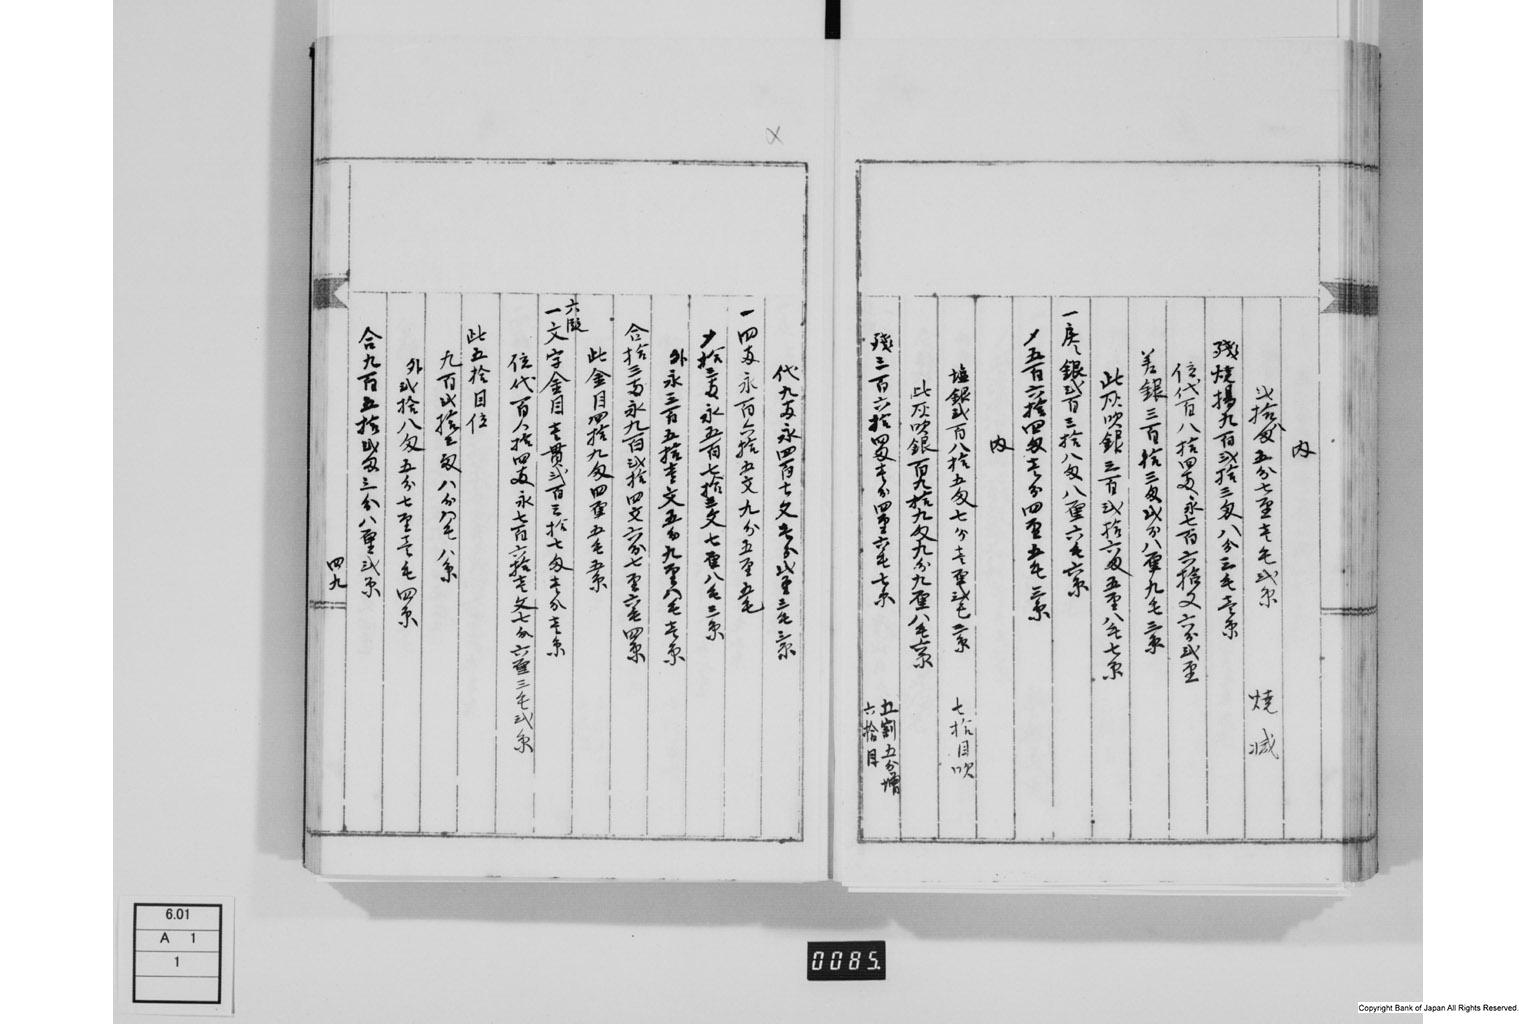 内
弐拾匁五分七厘壱毛弐糸 焼減
残焼揚九百弐拾三匁八分三毛壱糸
位代百八拾四両永七百六拾文六分弐厘
差銀三百拾三匁弐分八厘九毛三糸
此灰吹銀三百弐拾六匁五厘八毛七糸
一戻銀弐百三拾八匁八厘六毛六糸
〆五百六拾四匁壱分四厘五毛三糸
内
塩銀弐百八拾五匁七分壱厘弐毛三糸 七拾目吹
此灰吹銀百九拾九匁九分九厘八毛六糸
残三百六拾四匁壱分四厘六毛七糸 五割五分増
六拾目
代九両永四百七文壱分弐厘三毛三糸
一四両永百六拾五文九分五厘五毛
〆拾三両永五百七拾三文七厘八毛三糸
外永三百五拾壱文五分九厘八毛壱糸
合拾三両永九百弐拾四文六分七厘六毛四糸
此金目四拾九匁四厘五毛五糸
六改
一文字金目壱貫弐百三拾七匁壱分壱糸
位代百八拾四両永七百六拾壱文七分六厘三毛弐糸
此五拾目位
九百弐拾三匁八分八毛八糸
外弐拾八匁五分七厘壱毛四糸
合九百五拾弐匁三分八厘弐糸
四九
6.01
A 1
1
0085
Copyright Bank of Japan All Rights Reserved.